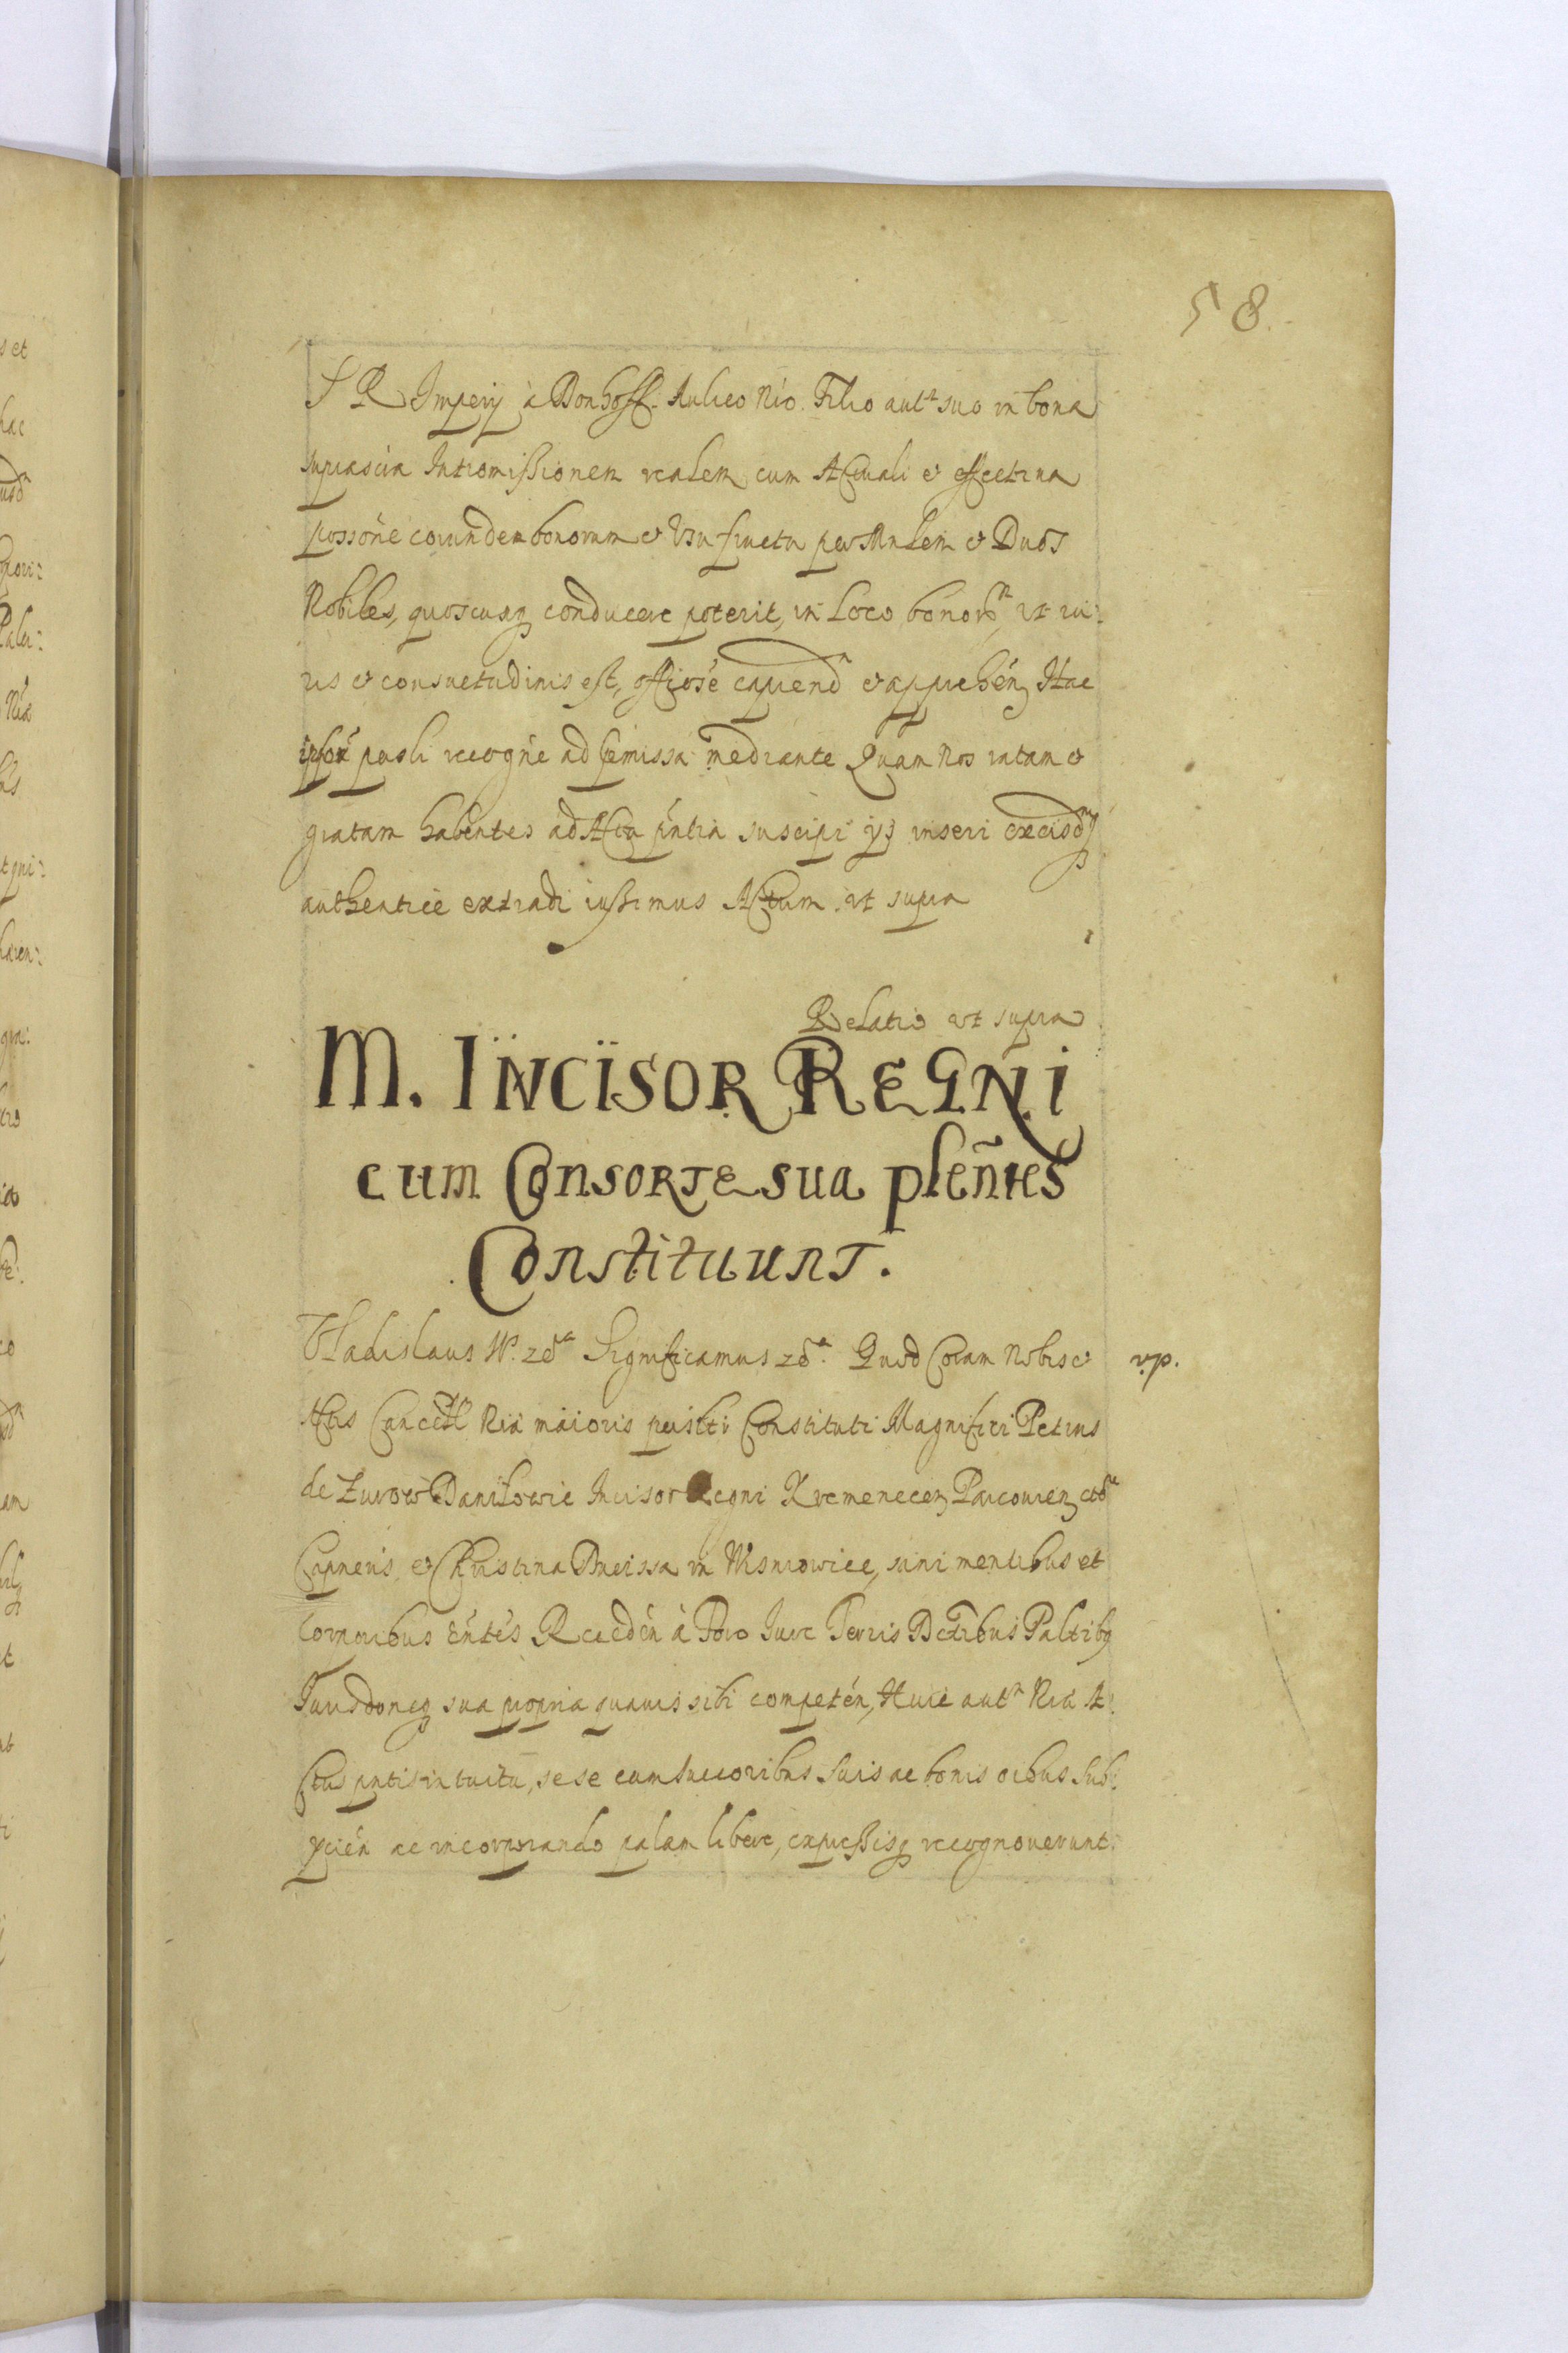 58.
S R Impery à Donhoff. Aulico Nrõ. Filio autẽ suo in bona
suprascũa Intromissionem realem cum Actuali et effectiva
possõne eorundem bonorum et Usufructu per Mnlem et Duos
Nobiles, quoscunq conducere poterit, in Loco bonorũ, ut iu:
ris et consuetudinis est, officiose capiend et apprehen, Hac
ipsor persli recogne ad pmissa mediante Quam Nos ratam et
gratam habentes ad Acta pntia suscipi ysq inseri exeisdq
authentice extradi iussimus Actum ut supra
Relatio ut supra
M. INCISOR REGNI
cum Consorte sua pleñtes
Constituunt.
Vladislaus IV. zc Significamus zc. Quod Coram Nobis et
v.p.
Actis Cancell Nris maioris persltr Constituti Magnifici Petrus
de Zurow Daniłowic Incisor Regni Kremenecen Parcovien etc
Capneus, et Christina Dneissa in Wisniowice, sani mentibus et
corporibus eñtes Receden à Foro Iure Terris Dctribus Paltibq
Iurisdoneq sua propria quavis sibi competén, Huic autẽ Nrã A:
ctus pntis intuitu, sese cum succoribus Suis ac bonis oibus Sub:
ycién ac incorporando palam libere, expressisq recognoverunt.